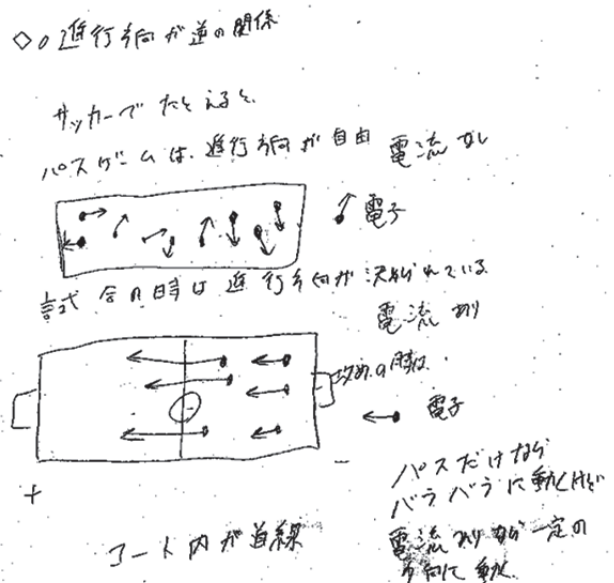 ◇。進行方向が逆の関係
サッカーでたとえると、
パスゲームは、進行方向が自由 電流なし
電子
試合の時は進行方向が決められている
電流あり
攻めの時は、
電子
+
−
コート内が導線
パスだけなら
バラバラに動くけど
電流ありなら一定の
方向に動く